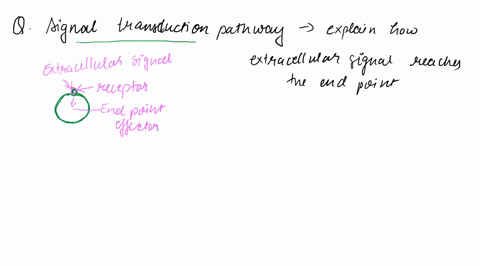 Q. Signal transduction pathway → explain how
extracellular signal reaches
the end point
Extracellular signal
receptor
End point
effector